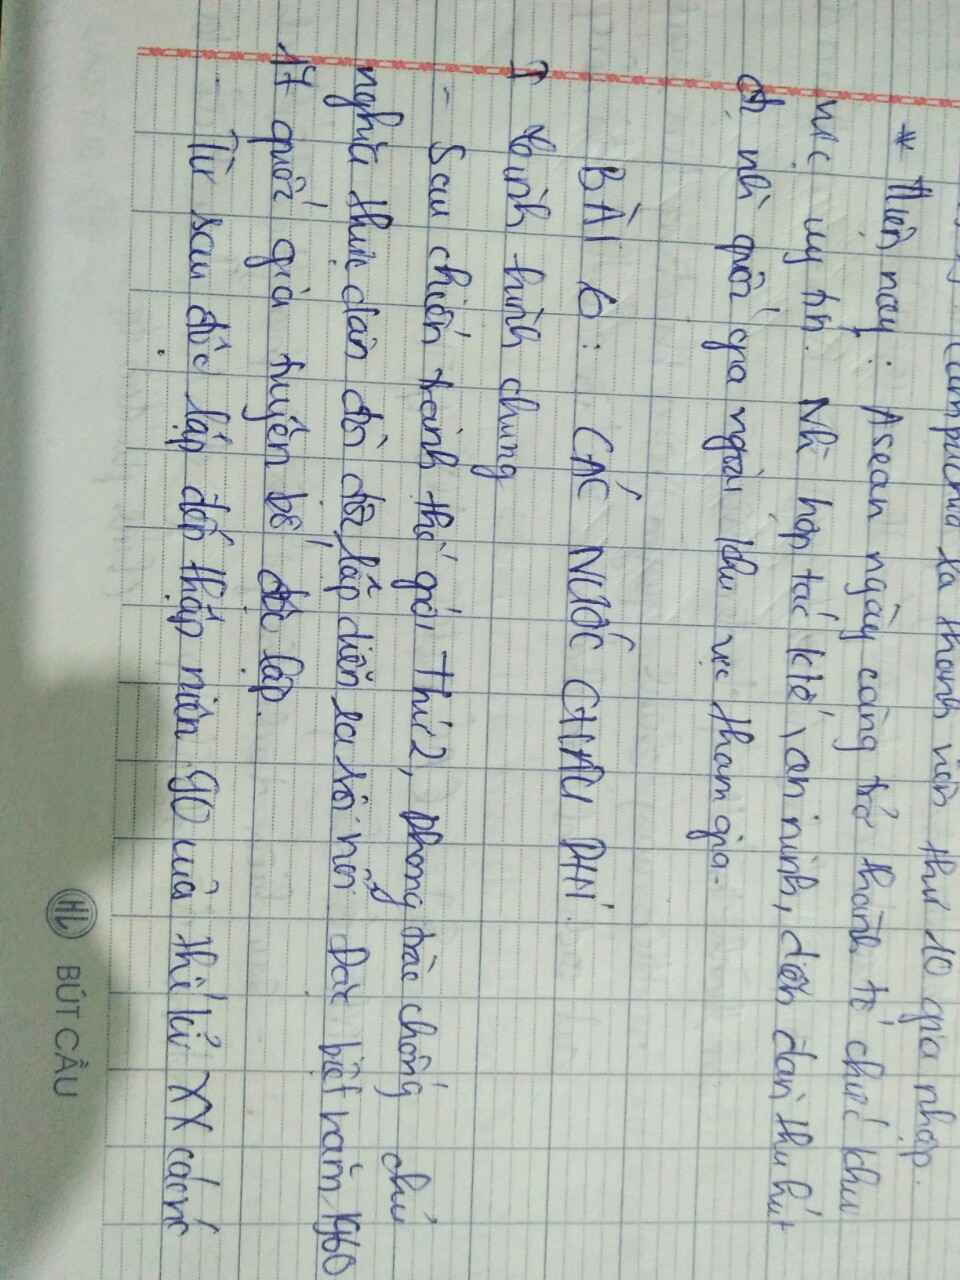 Campuchia là thành viên thứ 10 gia nhập.
* Hiện nay: Asean ngày càng trở thành tổ chức khu
vực uy tín. Nh hợp tác ktế, an ninh, diễn đàn thu hút
nh quốc gia ngoài khu vực tham gia.
BÀI 6: CÁC NƯỚC CHÂU PHI.
I Tình hình chung
- Sau chiến tranh thế giới thứ 2, phong trào chống chủ
nghĩa thực dân đòi độc lập diễn ra sôi nổi. Đặc biệt năm 1960
17 quốc gia tuyên bố độc lập.
- Từ sau độc lập đến thập niên 90 của thế kỉ XX các nc
HL BÚT CẦU